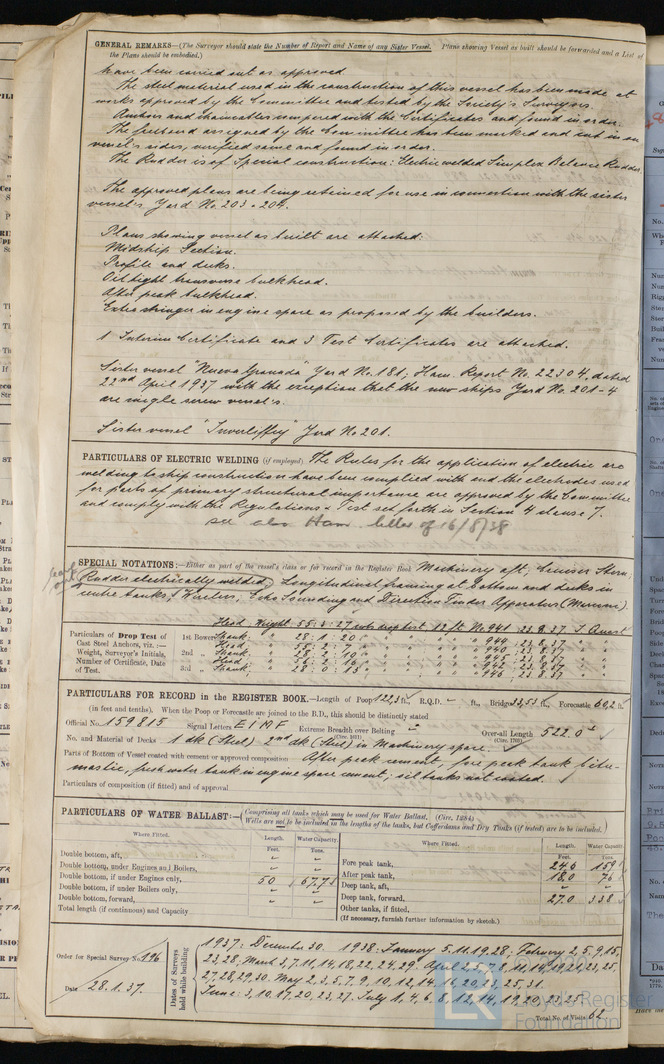 GENERAL REMARKS—(The Surveyor should state the Number of Report and Name of any Sister Vessel. Plans showing Vessel as built should be forwarded and a List of
the Plans should be embodied.)
have been carried out as approved.
The steel material used in the construction of this vessel has been made at
works approved by the Committee and tested by the Society's Surveyors.
Anchors and chaincables compared with the Certificates and found in order.
The freeboard assigned by the Committee has been marked and cut in on
vessel's sides, verified same and found in order.
The Rudder is of Special construction: Electric welded Simplex Balance Rudder.
The approved plans are being retained for use in connection with the sister
vessel's Yard No. 203 - 204.
Plans showing vessel as built are attached:
Midship Section.
Profile and decks.
Oiltight transverse bulkhead.
After peak bulkhead.
Extra stringer in engine space as proposed by the builders.
1 Interim Certificate and 3 Test Certificates are attached.
Sister vessel "Nueva Granada" Yard No. 181; Ham. Report No. 22304, dated
22nd April 1937 with the exception that the new ships Yard No. 201-4
are single screw vessel's.
Sister vessel "Inverliffey" Yard No 201.
PARTICULARS OF ELECTRIC WELDING (if employed) The Rules for the application of electric arc
welding to ship construction have been complied with and the electrodes used
for parts of primary structural importance are approved by the Committee
and comply with the Regulations & Test set forth in Section 4 clause 7.
see also Ham. letter of 16/8/38
SPECIAL NOTATIONS:—Either as part of the vessel's class or for record in the Register Book Machinery aft, Cruiser Stern,
Rudder electrically welded, Longitudinal framing at bottom and decks in
centre tanks, Wireless, Echo Sounding and Direction Finder Apparatus (Marconi).
Particulars of Drop Test of
Cast Steel Anchors, viz.:—
Weight, Surveyor's Initials,
Number of Certificate, Date
of Test.
1st Bower Head Weight 55:3:27 drop test 12 ft No 941 23.8.37
Shank " 28:1:20 " " " 944 23.8.37 "
2nd " Head " 55:2:7 " " " 940 23.8.37 "
Shank " 28:1:10 " " " 945 23.8.37 "
3rd " Head " 56:2:16 " " " 942 23.8.37 "
Shank " 28:0:15 " " " 946 23.8.37 "
PARTICULARS FOR RECORD in the REGISTER BOOK.—Length of Poop 122,3 ft., R.Q.D. - ft., Bridge 33,53 ft., Forecastle 60,2 ft.
(in feet and tenths). When the Poop or Forecastle are joined to the B.D., this should be distinctly stated
Official No. 159815 Signal Letters E I M F Extreme Breadth over Belting (Circ. 1611) Over-all Length (Circ. 1703) 522.0
No. and Material of Decks 1 dk (Steel) 2nd dk (Steel) in Machinery space.
Parts of Bottom of Vessel coated with cement or approved composition After peak cement, fore peak tank bitu-
mastic, fresh water tank in engine space cement, oil tanks not coated.
Particulars of composition (if fitted) and of approval
PARTICULARS OF WATER BALLAST:—(Comprising all tanks which may be used for Water Ballast. (Circ. 1284)
Wells are not to be included in the lengths of the tanks, but Cofferdams and Dry Tanks (if tested) are to be included.)
Where Fitted. Length. Water Capacity. Where Fitted. Length. Water Capacity.
Feet. Tons. Feet. Tons.
Double bottom, aft, Fore peak tank, 24,6 159
Double bottom, under Engines and Boilers, After peak tank, 18,0 76
Double bottom, if under Engines only, 50 67.73 Deep tank, aft,
Double bottom, if under Boilers only, Deep tank, forward, 27.0 338
Double bottom, forward, Other tanks, if fitted,
Total length (if continuous) and Capacity (If necessary, furnish further information by sketch.)
Order for Special Survey No. 196
Date 28.1.37.
Dates of Surveys
held while building
1937: December 30. 1938: January 5.11.19.28; February 2.5.9.15,
23,28, March 3,7,11,14,18,22,24,29. April 2,5,7,8,11,14,19,21,23,25,
27,28,29,30. May 2,3,5,7,9,10,12,14,16,20,23,25,31.
June: 3,10,17,20,23,27. July 1,4,6,8,12,14,19,20,23,25.
Total No. of Visits 62
© 2020
LR
Lloyd's Register
Foundation